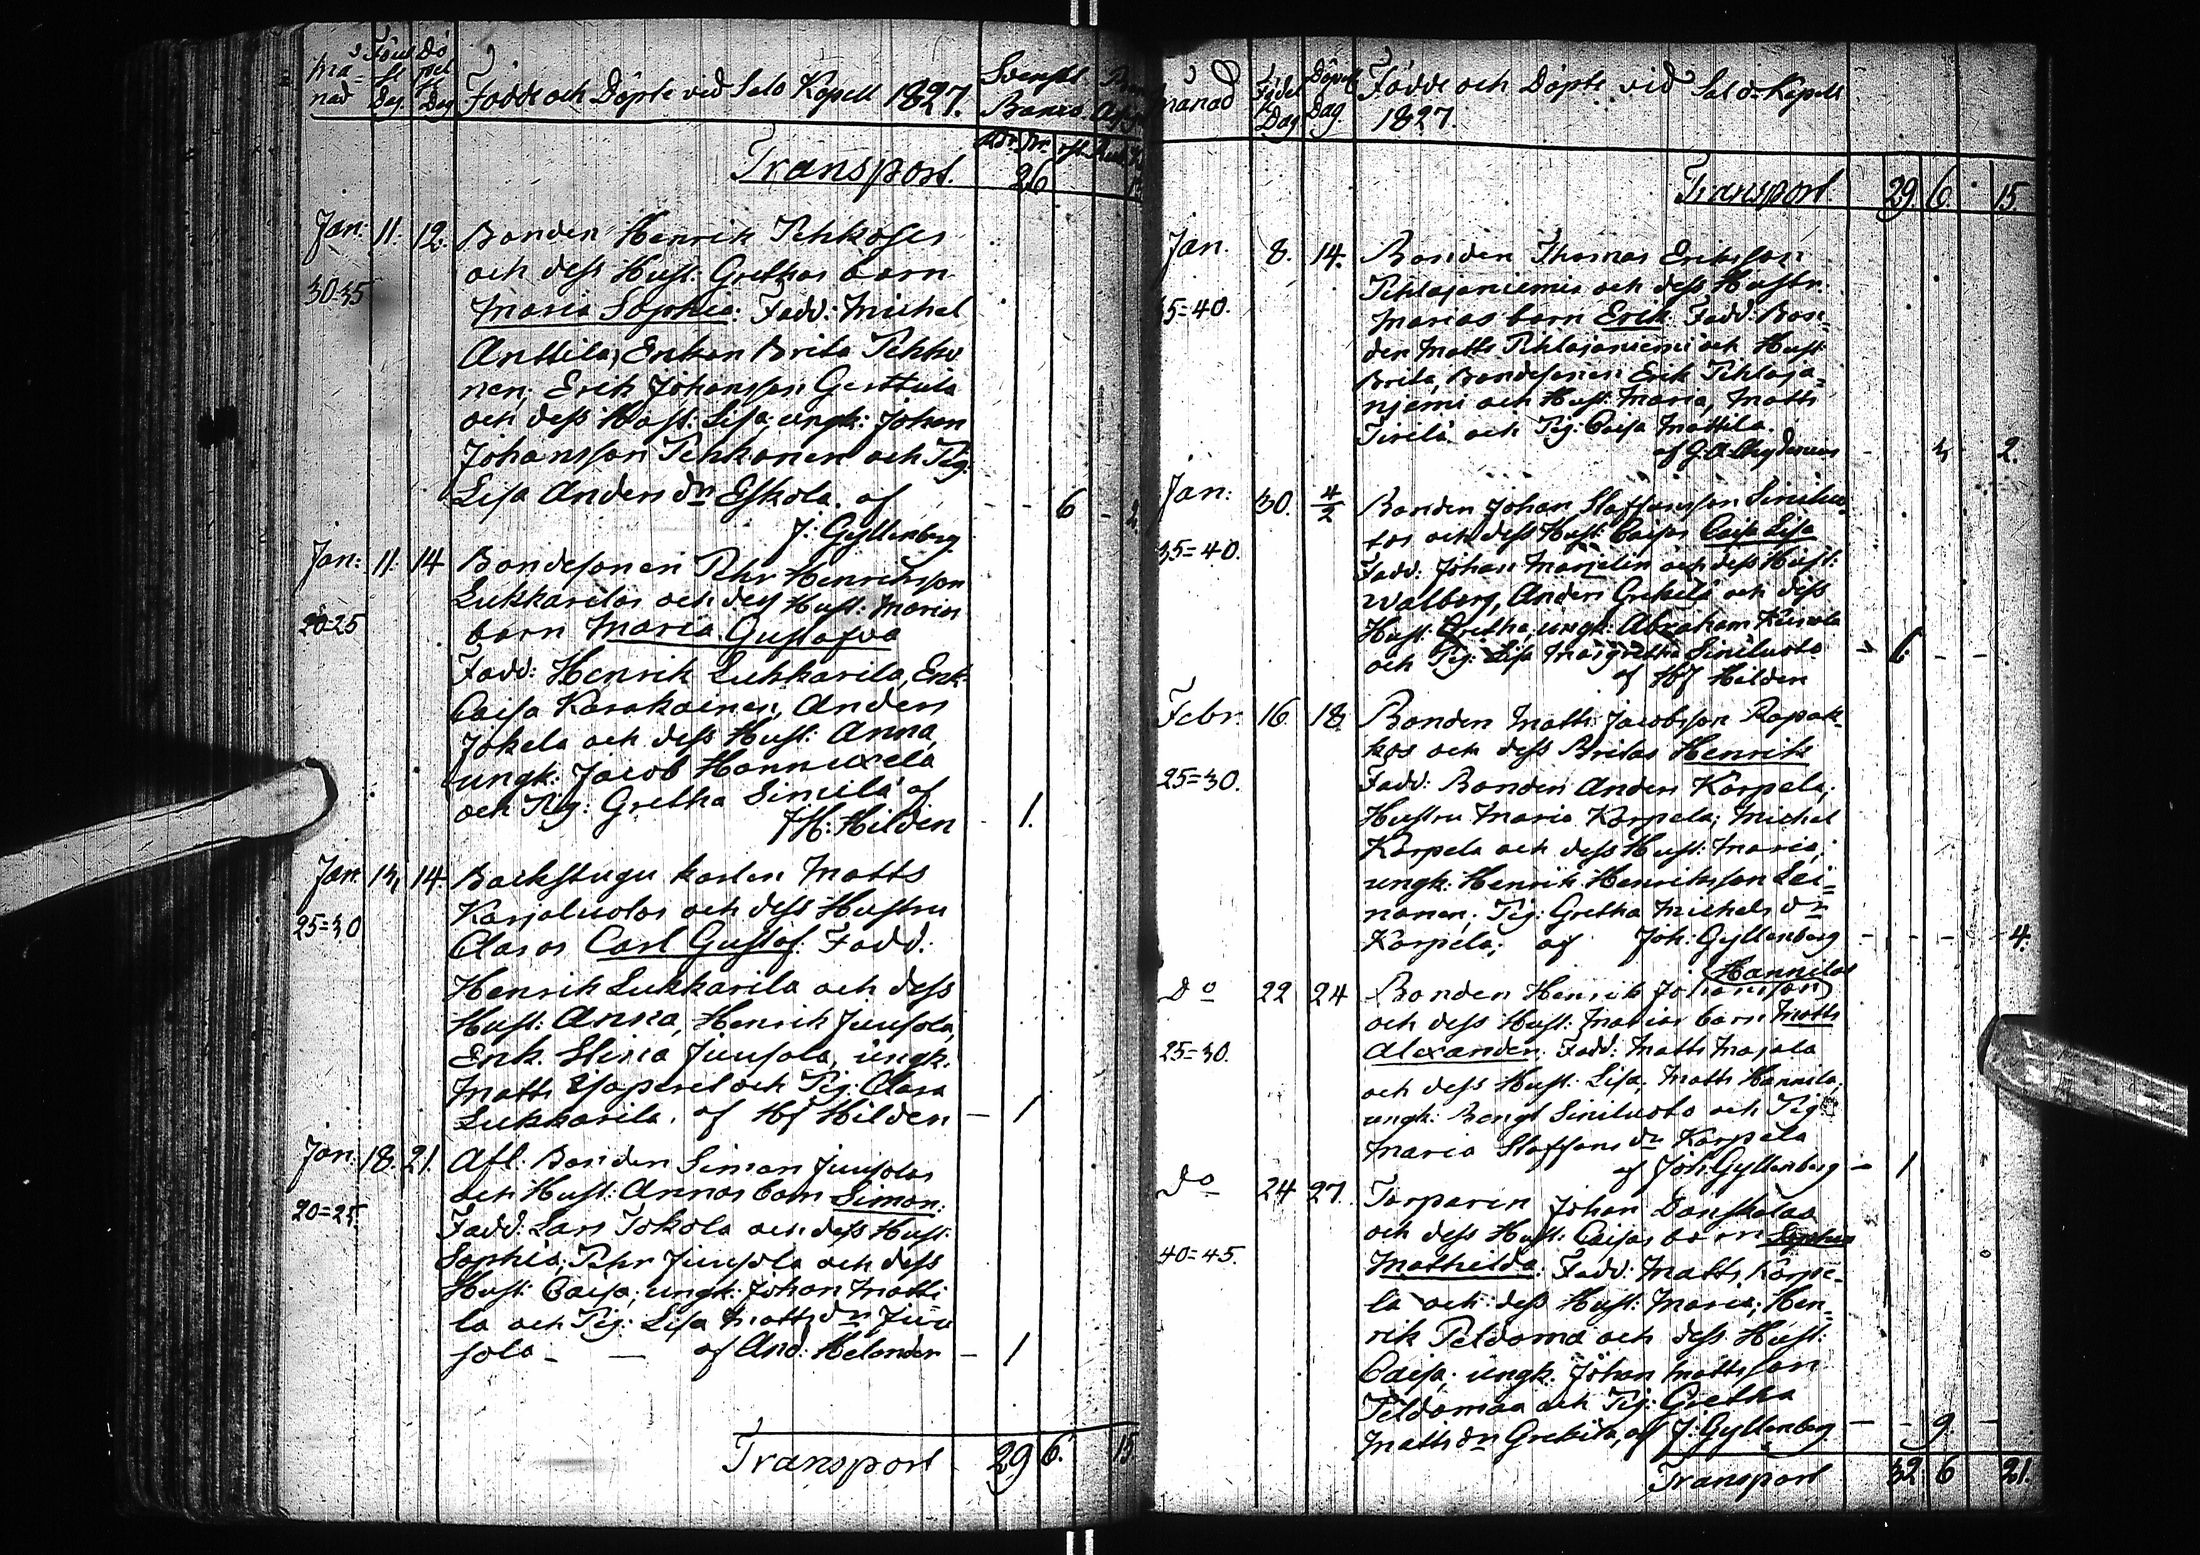 må-
nad
Födel
se
Dag.
Dö
pel
Dag
Födde och Döpte vid Salo Kapell 1827.
Svenskt
Banco.
Transport. 26
Jan: 11. 12. Bonden Henrik Pehkoses
och dess Hust: Grethas barn
30-35 Maria Sophia: Fadd: Michel
Anttila, Enkan Brita Pehko
nen, Erik Johansson Gerttula
och dess Hust: Lisa, ungk: Johan
Johansson Pehkonen och Pig:
Lisa Anders dr Eskola. af - - 6 - 2.
J: Gyllenberg
Jan: 11. 14 Bondesonen Pehr Henriksson
Lukkarilas och dess Hust: Marias
20-25 barn Maria Gustafva
Fadd: Henrik Lukkarila, Enk:
Caisa Karakainen, Anders
Jokela och dess Hust: Anna,
ungk: Jacob Hannuxela
och Pig: Gretha Sinilä af
H: Hilden - 1.
Jan 13. 14. Backstugu karlen Matts
Karjaluotos och dess Hustru
25=30 Claras Carl Gustaf. Fadd:
Henrik Lukkarila och dess
Hust: Anna, Henrik Juusola,
Enk. Stina Juusola, ungk.
Matts och Pig: Clara
Lukkarila. af HJ Hilden - 1
Jan: 18. 21. Afl: Bonden Simon Juusolas
och Hust: Annas barn Simon:
20=25. Fadd: Lars Tokola och dess Hust:
Sophia, Pehr Juusola och dess
Hust: Caisa, ungk: Johan Matti
la och Pig: Lisa Matts dr Juu
sola - - af And: Helander - 1
Transport 29 6. 15
månad
Födel
Dag
Döpelse
Dag.
Födde och Döpte vid Salo Kapell
1827.
Transport. 29. 6. 15.
Jan. 8. 14. Bonden Thomas Eriksson
Pehlajaniemis och dess Hustr.
35=40. Marias barn Erik. Fadd: Bon-
den Matts Pihlajaniemi och Hust:
Brita, Bondesonen Erik Pihlaja-
njemi och Hust: Maria, Matts
Tirilä och Pig: Caisa Mattila.
af G.A. - 3 2.
Jan: 30. 4/2 Bonden Johan Staffansson Siniluo-
tos och dess Hust: Caisas Caisa Lisa
35=40. Fadd: Johan Marjelin och dess Hust:
Walborg, Anders Grekilä och dess
Hust: Gretha, ungk: Abraham
och Pig: Lisa Margretha Siniluoto - 6. - -
af HJ Hilden
Febr: 16. 18. Bonden Matts Jacobsson Rapak-
kos och dess Britas Henrik
25=30. Fadd: Bonden Anders Korpela,
Hustru Maria Korpela; Michel
Korpela och dess Hust: Maria;
ungk: Henrik Henriksson Lei=
nonen; Pig: Gretha Michels dr
Korpela; af Joh: Gyllenberg - - - - 4.
Hannilas
Do 22 24 Bonden Henrik Johansson
och dess Hust: Marias barn Matts
25=30. Alexander. Fadd: Matts Majala
och dess Hust: Lisa. Matts Hannila,
ungk: Bengt Siniluoto och Pig:
Maria Staffans dr Korpela
af Joh: Gyllenberg - 1
Do 24 27. Torparen Johan Danskelas
och dess Hust: Caisas barn Sophia
40=45. Mathilda: Fadd: Matts Korpe-
la och dess Hust: Maria; Hen-
rik Peldomaa och dess Hust:
Caisa, ungk. Johan Mattsson
Peldomaa och Pig: Gretha
Matts dr Grekilä, af J: Gyllenberg - - 9. -
Transport 32 6 21.